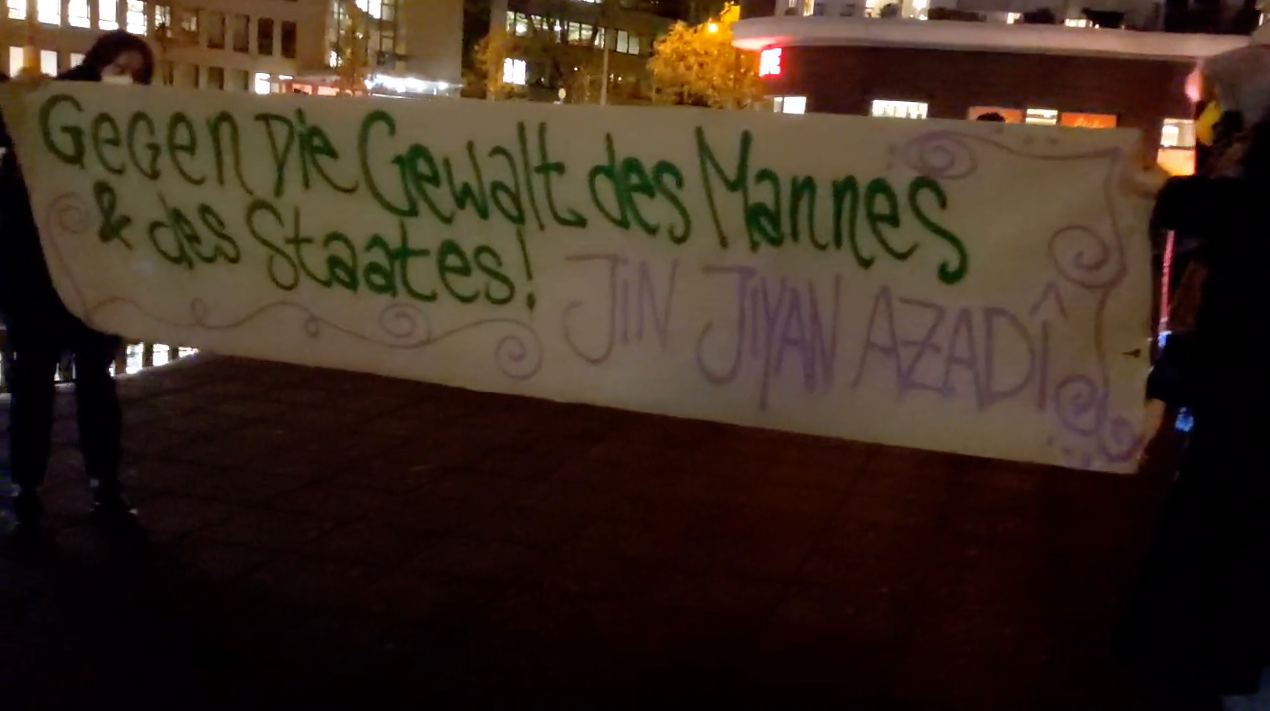 Gegen Die Gewalt des Mannes
& des Staates! JIN JIYAN AZADÎ